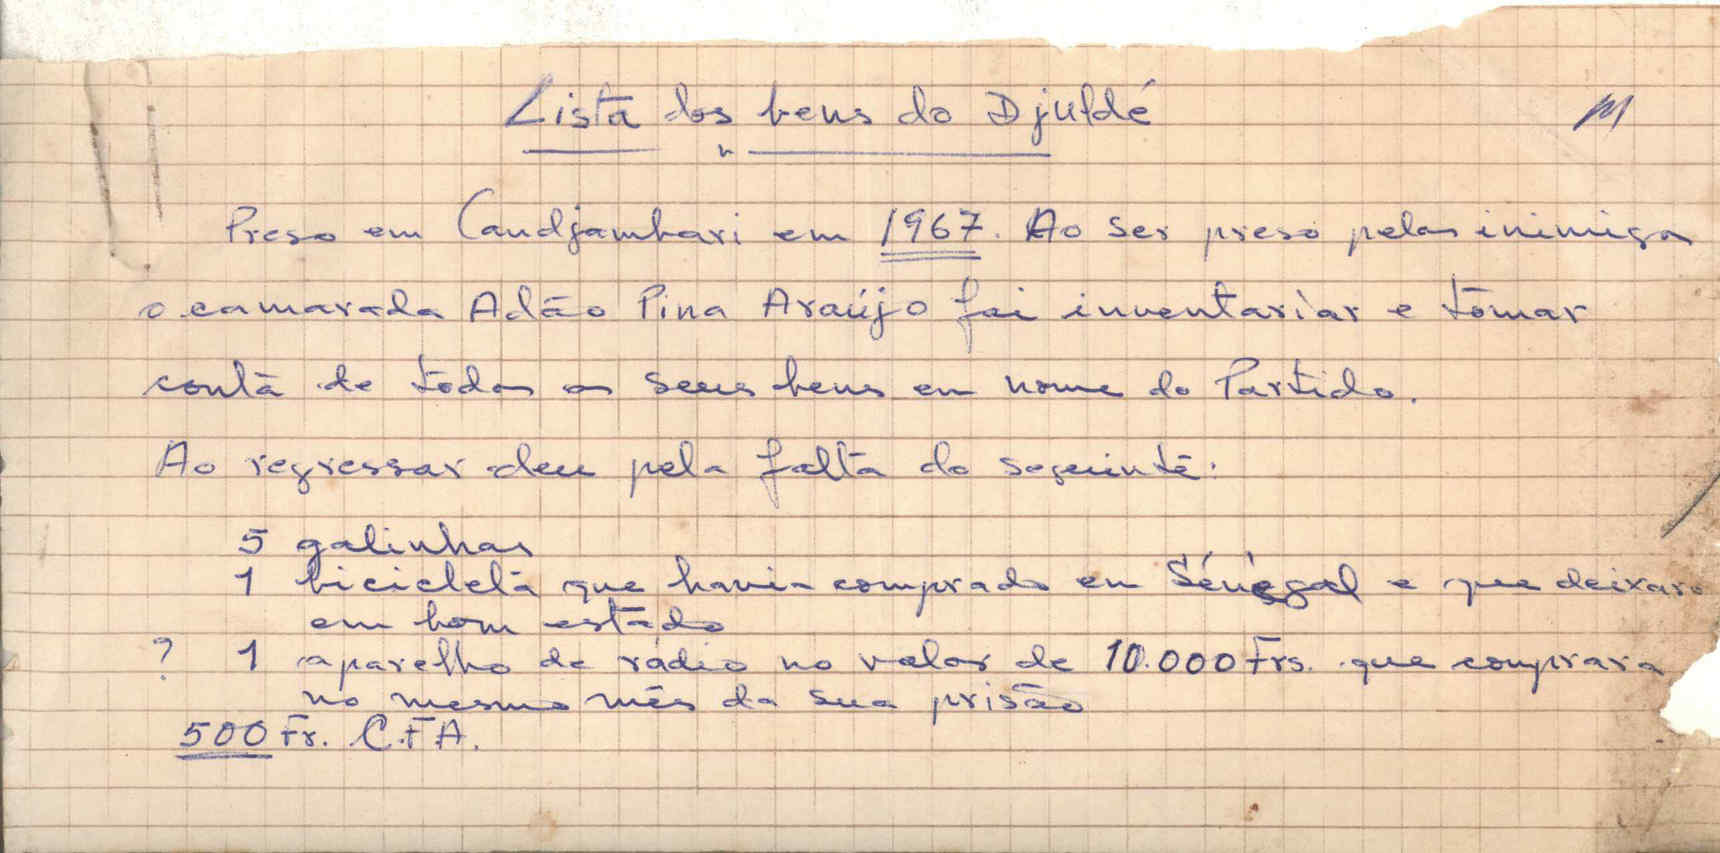 Lista dos bens do Djuldé
Preso em Candjambari em 1967. Ao ser preso pelos inimigos
o camarada Adão Pina Araújo foi inventariar e tomar
conta de todos os seus bens em nome do Partido.
Ao regressar deu pela falta do seguinte:
5 galinhas
1 bicicleta que havia comprado em Sénégal e que deixara
em bom estado
? 1 aparelho de rádio no valor de 10.000 Frs. que comprara
no mesmo mês da sua prisão
500 Fr. C.F.A.